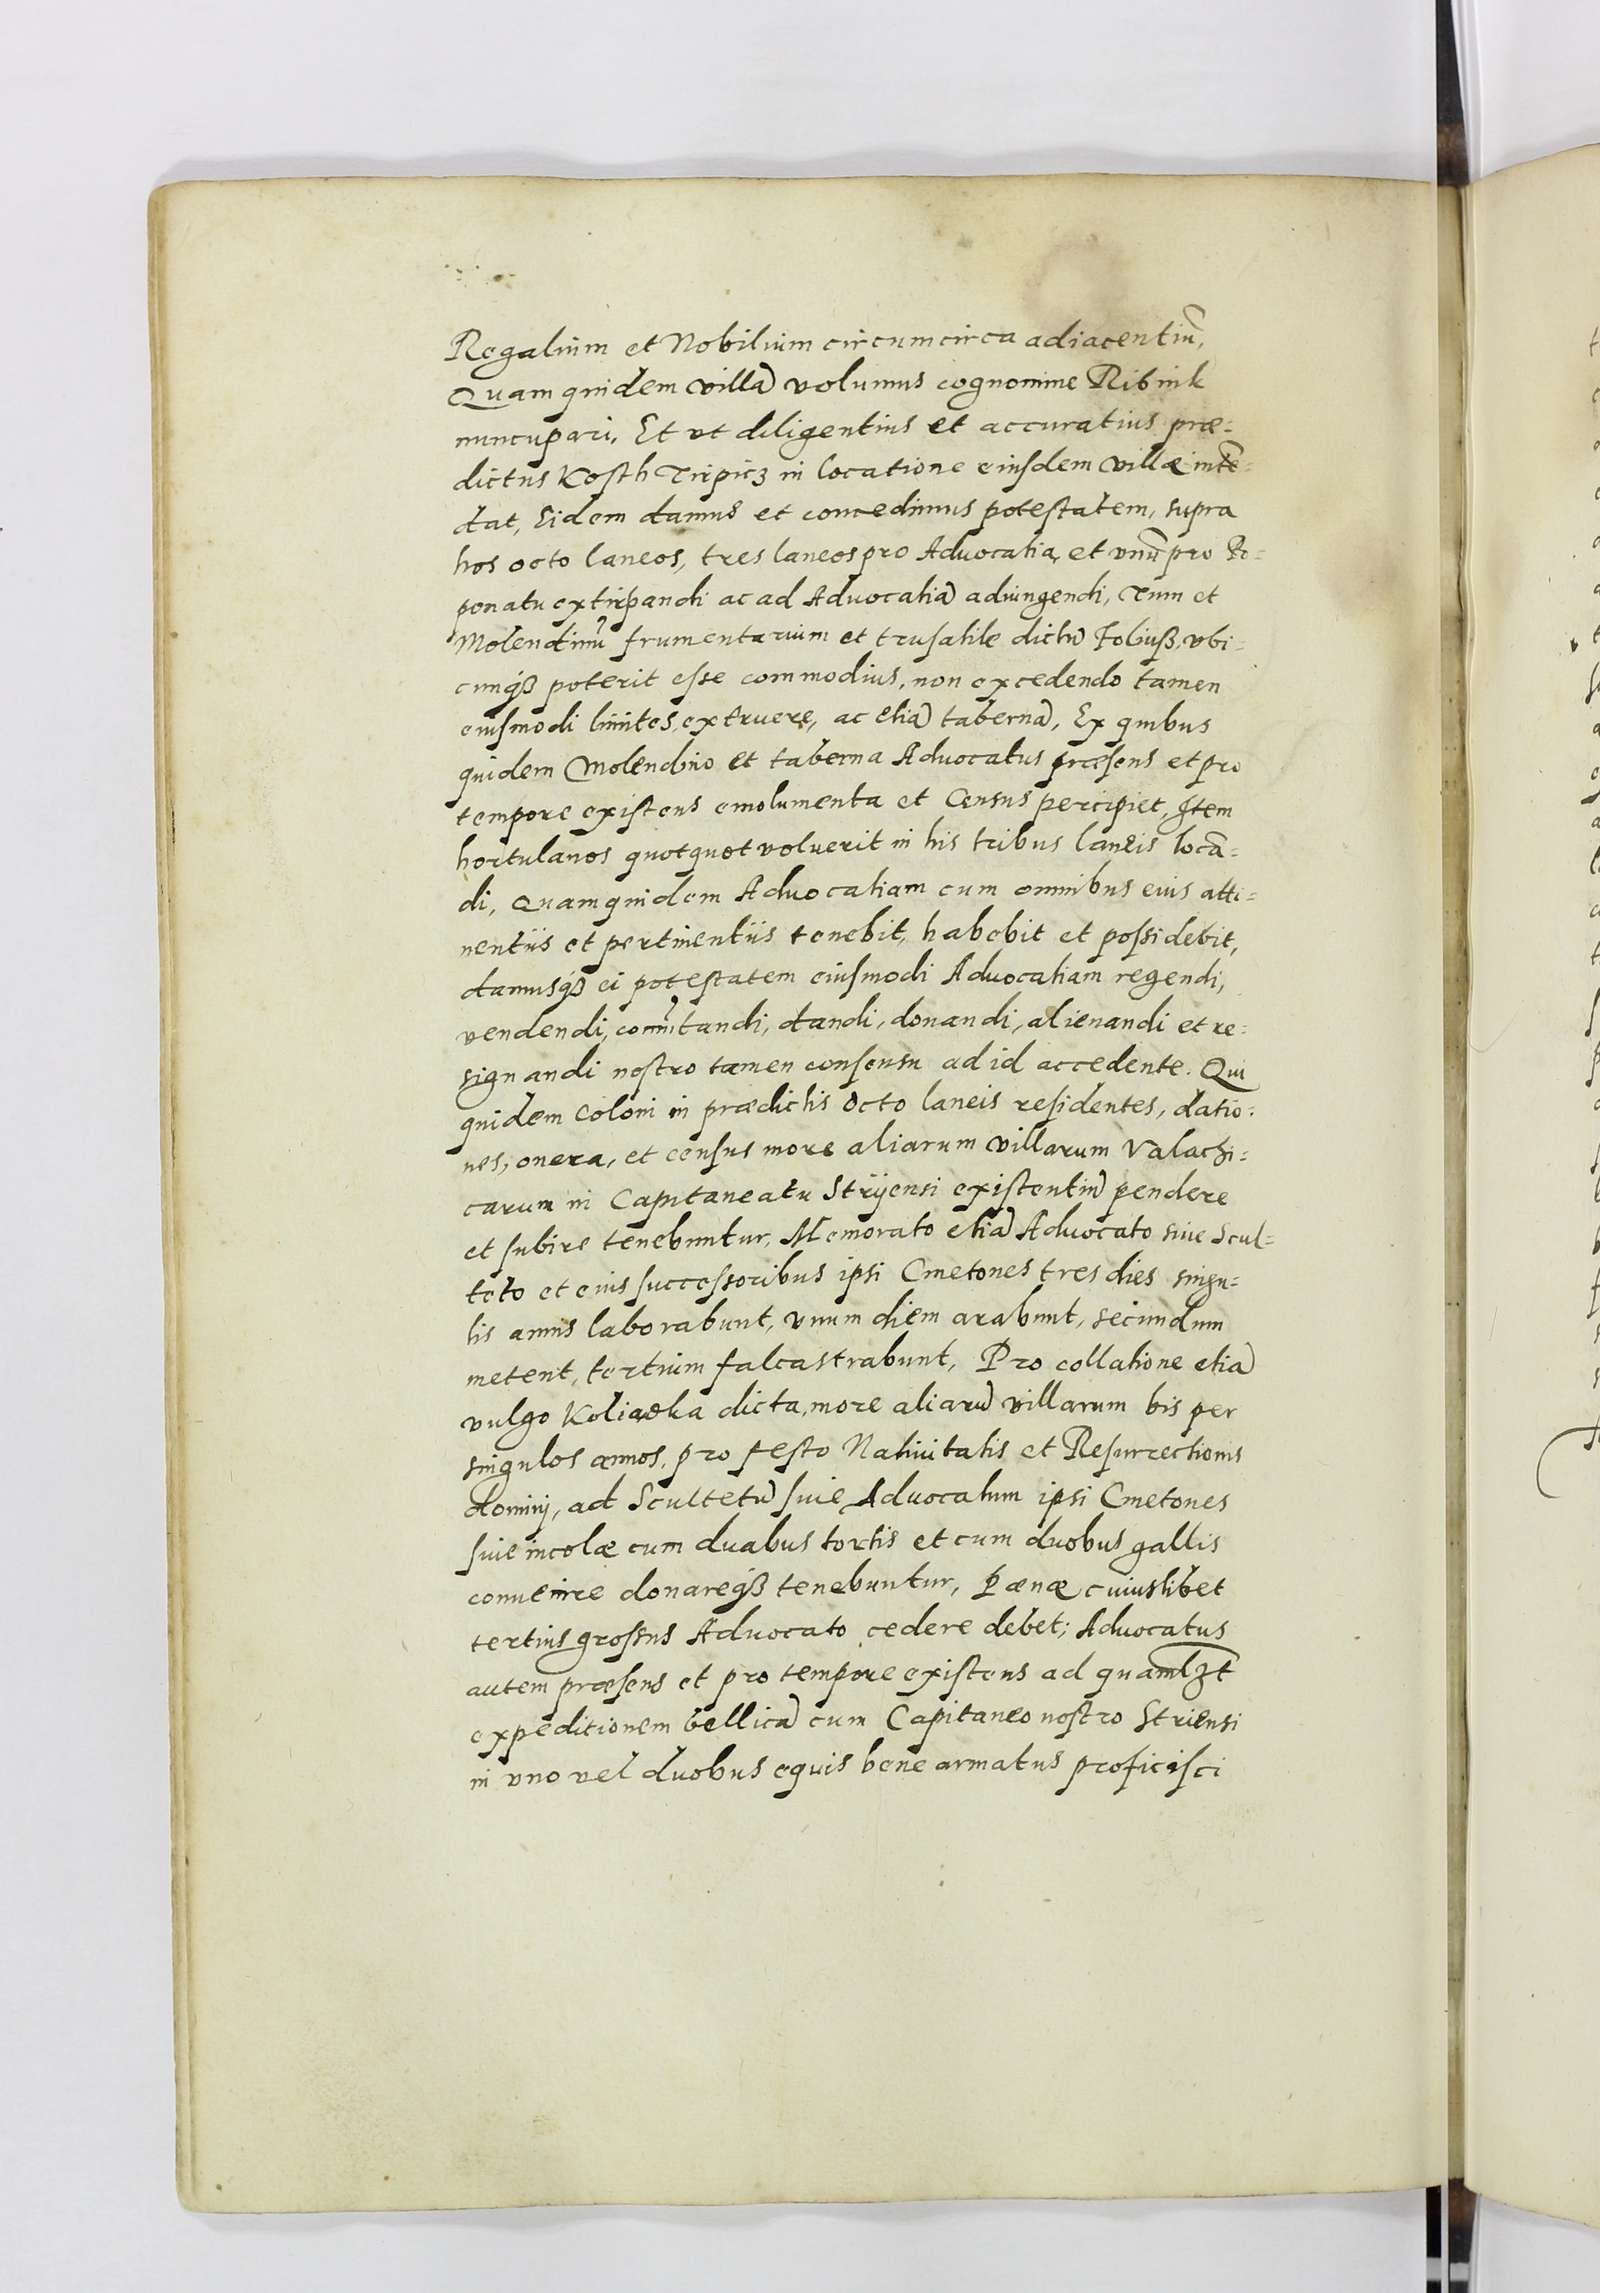 Regalium et Nobilium circumcirca adiacentiũ,
Quam quidem villã volumus cognomine Ribnik
nuncupari. Et vt diligentius et accuratius præ=
dictus Kosth Tirpicz in locatione eiusdem villæ intẽ=
dat, Eidem damus et concedimus potestatem, supra
hos octo laneos, tres laneos pro Advocatia, et vnũ pro Po=
ponatu extirpandi ac ad Advocatiã adiungendi, Tum et
Molendinũ frumentarium et trusatile dictũ Foliusß, vbi=
cunqß poterit esse commodius, non excedendo tamen
eiusmodi limites, extruere, ac etiã tabernã, Ex quibus
quidem Molendino et taberna Advocatus præsens et pro
tempore existens emolumenta et Census percipiet, Item
hortulanos quotquot voluerit in his tribus laneis locã=
di, Quamquidem Advocatiam cum omnibus eius atti=
nentiis et pertinentiis tenebit, habebit et possidebit,
damusqß ei potestatem eiusmodi Advocatiam regendi,
vendendi, comũtandi, dandi, donandi, alienandi et re=
signandi nostro tamen consensu ad id accedente. Qui
quidem Coloni in prædictis octo laneis residentes, datio=
nes, onera, et census more aliarum villarum Valachi=
carum in Capitaneatu Stryensi existentiũ pendere
et subire tenebuntur, Memorato etiã Advocato siue Scul=
teto et eius successoribus ipsi Cmetones tres dies singu=
lis annis laborabunt, vnum diem arabunt, secundum
metent, tertium falcastrabunt, Pro collatione etiã
vulgo Koliadka dicta, more aliarũ villarum bis per
singulos annos, pro festo Natiuitatis et Resurrectionis
dominj, ad Scultetũ siue Advocatum ipsi Cmetones
siue incolæ cum duabus tortis et cum duobus gallis
conuenire donareqß tenebuntur, Pænæ cuiuslibet
tertius grossus Advocato cedere debet; Advocatus
autem præsens et pro tempore existens ad quamlꝫt
expeditionem bellicã cum Capitaneo nostro Striensi
in vno vel duobus equis bene armatus proficisci